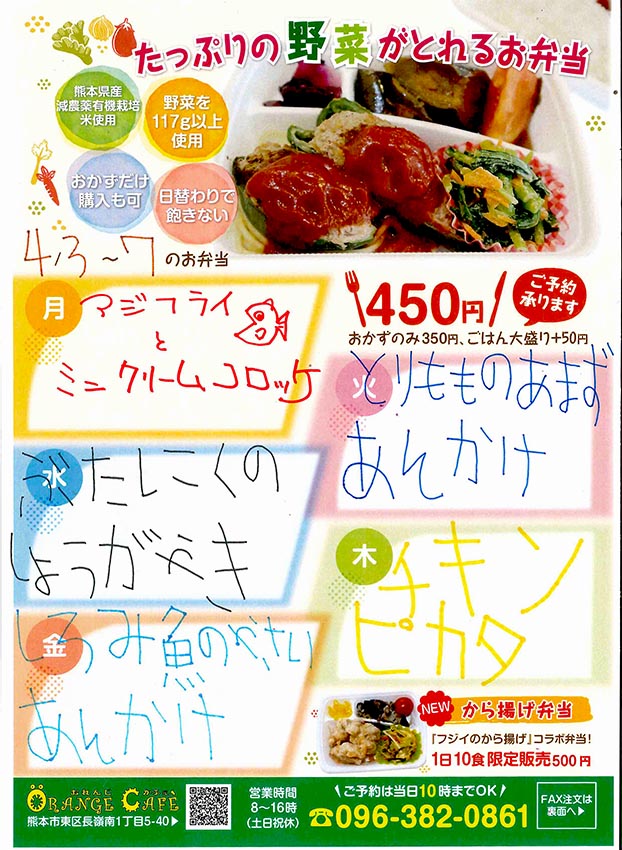 たっぷりの野菜がとれるお弁当
熊本県産
減農薬有機栽培
米使用
野菜を
117g以上
使用
おかずだけ
購入も可
日替わりで
飽きない
4/3~7のお弁当
月
マジフライ
と
ミニクリームコロッケ
450円
ご予約
承ります
おかずのみ350円、ごはん大盛り+50円
火
とりもものあまず
あんかけ
水
ぶたにくの
しょうがやき
木
チキン
ピカタ
金
しろみ魚のやさい
あんかけ
NEW から揚げ弁当
「フジイのから揚げ」コラボ弁当!
1日10食限定販売500円
おれんじ かふぇ
ORANGE CAFE
熊本市東区長嶺南1丁目5-40▶
営業時間
8~16時
(土日祝休)
\ご予約は当日10時までOK/
☎096-382-0861
FAX注文は
裏面へ▶